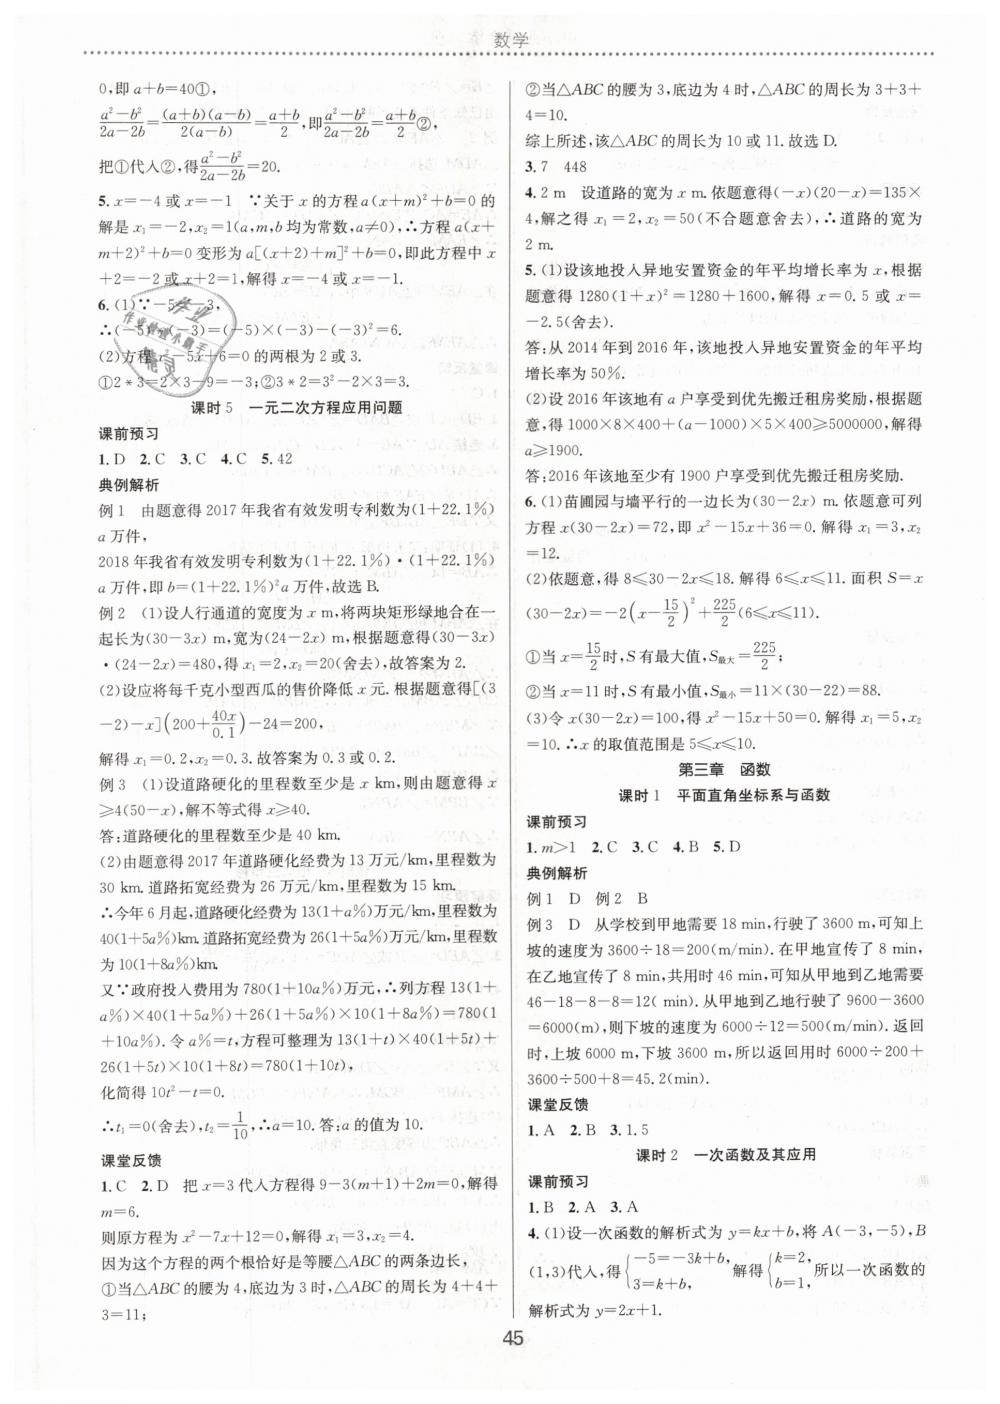 数学
0,即 a+b=40①,
\frac{a²-b²}{2a-2b}=\frac{(a+b)(a-b)}{2(a-b)}=\frac{a+b}{2},即\frac{a²-b²}{2a-2b}=\frac{a+b}{2}②,
把①代入②,得\frac{a²-b²}{2a-2b}=20.
5. x=-4 或 x=-1 ∵关于 x 的方程 a(x+m)²+b=0 的
解是 x₁=-2,x₂=1(a,m,b 均为常数,a≠0),∴方程 a(x+
m+2)²+b=0 变形为 a[(x+2)+m]²+b=0,即此方程中 x
+2=-2 或 x+2=1,解得 x=-4 或 x=-1.
6. (1)∵-5<-3,
∴(-5)*(-3)=(-5)×(-3)-(-3)²=6.
(2)方程 x²-5x+6=0 的两根为 2 或 3.
①2*3=2×3-9=-3;②3*2=3²-2×3=3.
课时 5 一元二次方程应用问题
课前预习
1. D 2. C 3. C 4. C 5. 42
典例解析
例 1 由题意得 2017 年我省有效发明专利数为(1+22.1%)
a 万件,
2018 年我省有效发明专利数为(1+22.1%)·(1+22.1%)
a 万件,即 b=(1+22.1%)²a 万件,故选 B.
例 2 (1)设人行通道的宽度为 x m,将两块矩形绿地合在一
起长为(30-3x) m,宽为(24-2x) m,根据题意得(30-3x)
·(24-2x)=480,得 x₁=2,x₂=20(舍去),故答案为 2.
(2)设应将每千克小型西瓜的售价降低 x 元. 根据题意得[(3
-2)-x](200+\frac{40x}{0.1})-24=200,
解得 x₁=0.2,x₂=0.3. 故答案为 0.3 或 0.2.
例 3 (1)设道路硬化的里程数至少是 x km,则由题意得 x
≥4(50-x),解不等式得 x≥40.
答:道路硬化的里程数至少是 40 km.
(2)由题意得 2017 年道路硬化经费为 13 万元/km,里程数为
30 km. 道路拓宽经费为 26 万元/km,里程数为 15 km.
∴今年 6 月起,道路硬化经费为 13(1+a%)万元/km,里程数为
40(1+5a%)km. 道路拓宽经费为 26(1+5a%)万元/km,里程数
为 10(1+8a%)km.
又∵政府投入费用为 780(1+10a%)万元,∴列方程 13(1+
a%)×40(1+5a%)+26(1+5a%)×10(1+8a%)=780(1
+10a%). 令 a%=t,方程可整理为 13(1+t)×40(1+5t)+
26(1+5t)×10(1+8t)=780(1+10t),
化简得 10t²-t=0.
∴t₁=0(舍去),t₂=\frac{1}{10},∴a=10. 答:a 的值为 10.
课堂反馈
1. C 2. D 把 x=3 代入方程得 9-3(m+1)+2m=0,解得
m=6.
则原方程为 x²-7x+12=0,解得 x₁=3,x₂=4.
因为这个方程的两个根恰好是等腰△ABC 的两条边长,
①当△ABC 的腰为 4,底边为 3 时,△ABC 的周长为 4+4+
3=11;
②当△ABC 的腰为 3,底边为 4 时,△ABC 的周长为 3+3+
4=10.
综上所述,该△ABC 的周长为 10 或 11. 故选 D.
3. 7 448
4. 2 m 设道路的宽为 x m. 依题意得(-x)(20-x)=135×
4,解之得 x₁=2,x₂=50(不合题意舍去),∴道路的宽为
2 m.
5. (1)设该地投入异地安置资金的年平均增长率为 x,根据
题意得 1280(1+x)²=1280+1600,解得 x=0.5 或 x=
-2.5(舍去).
答:从 2014 年到 2016 年,该地投入异地安置资金的年平均
增长率为 50%.
(2)设 2016 年该地有 a 户享受到优先搬迁租房奖励,根据题
意得 1000×8×400+(a-1000)×5×400≥5000000,解得
a≥1900.
答:2016 年该地至少有 1900 户享受到优先搬迁租房奖励.
6. (1)苗圃园与墙平行的一边长为(30-2x) m. 依题意可列
方程 x(30-2x)=72,即 x²-15x+36=0. 解得 x₁=3,x₂
=12.
(2)依题意,得 8≤30-2x≤18. 解得 6≤x≤11. 面积 S=x
(30-2x)=-2(x-\frac{15}{2})²+\frac{225}{2}(6≤x≤11).
①当 x=\frac{15}{2}时,S 有最大值,S最大=\frac{225}{2};
②当 x=11 时,S 有最小值,S最小=11×(30-22)=88.
(3)令 x(30-2x)=100,得 x²-15x+50=0. 解得 x₁=5,x₂
=10. ∴x 的取值范围是 5≤x≤10.
第三章 函数
课时 1 平面直角坐标系与函数
课前预习
1. m>1 2. C 3. C 4. B 5. D
典例解析
例 1 D 例 2 B
例 3 D 从学校到甲地需要 18 min,行驶了 3600 m,可知上
坡的速度为 3600÷18=200(m/min). 在甲地宣传了 8 min,
在乙地宣传了 8 min,共用时 46 min,可知从甲地到乙地需要
46-18-8-8=12( min). 从甲地到乙地行驶了 9600-3600
=6000(m),则下坡的速度为 6000÷12=500(m/min). 返回
时,上坡 6000 m,下坡 3600 m,所以返回用时 6000÷200+
3600÷500+8=45.2(min).
课堂反馈
1. A 2. B 3. 1.5
课时 2 一次函数及其应用
课前预习
1. B 2. A 3. A
4. (1)设一次函数的解析式为 y=kx+b,将 A(-3,-5),B
(1,3)代入,得{-5=-3k+b, 3=k+b, 解得{k=2, b=1, 所以一次函数的
解析式为 y=2x+1.
45